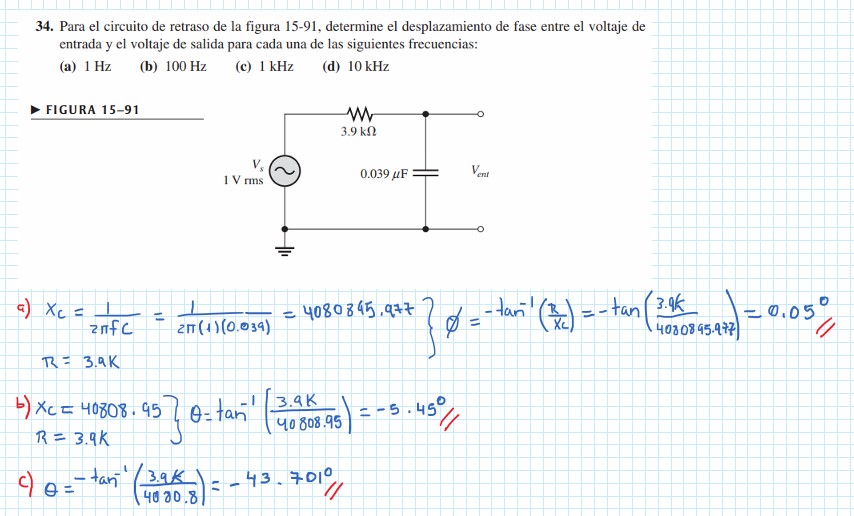 34. Para el circuito de retraso de la figura 15-91, determine el desplazamiento de fase entre el voltaje de
entrada y el voltaje de salida para cada una de las siguientes frecuencias:
(a) 1 Hz (b) 100 Hz (c) 1 kHz (d) 10 kHz
► FIGURA 15–91
3.9 kΩ
Vs
1 V rms
0.039 μF
Vent
a) Xc = 1/2πfC = 1/2π(1)(0.039) = 4080895.977 } ø = -tan⁻¹(R/Xc) = -tan(3.9K/4080895.977) = 0.05°
R = 3.9K
b) Xc = 40808.95 } θ= tan⁻¹(3.9K/40808.95) = -5.45°
R = 3.9K
c) θ = -tan⁻¹(3.9K/4080.8) = -43.701°